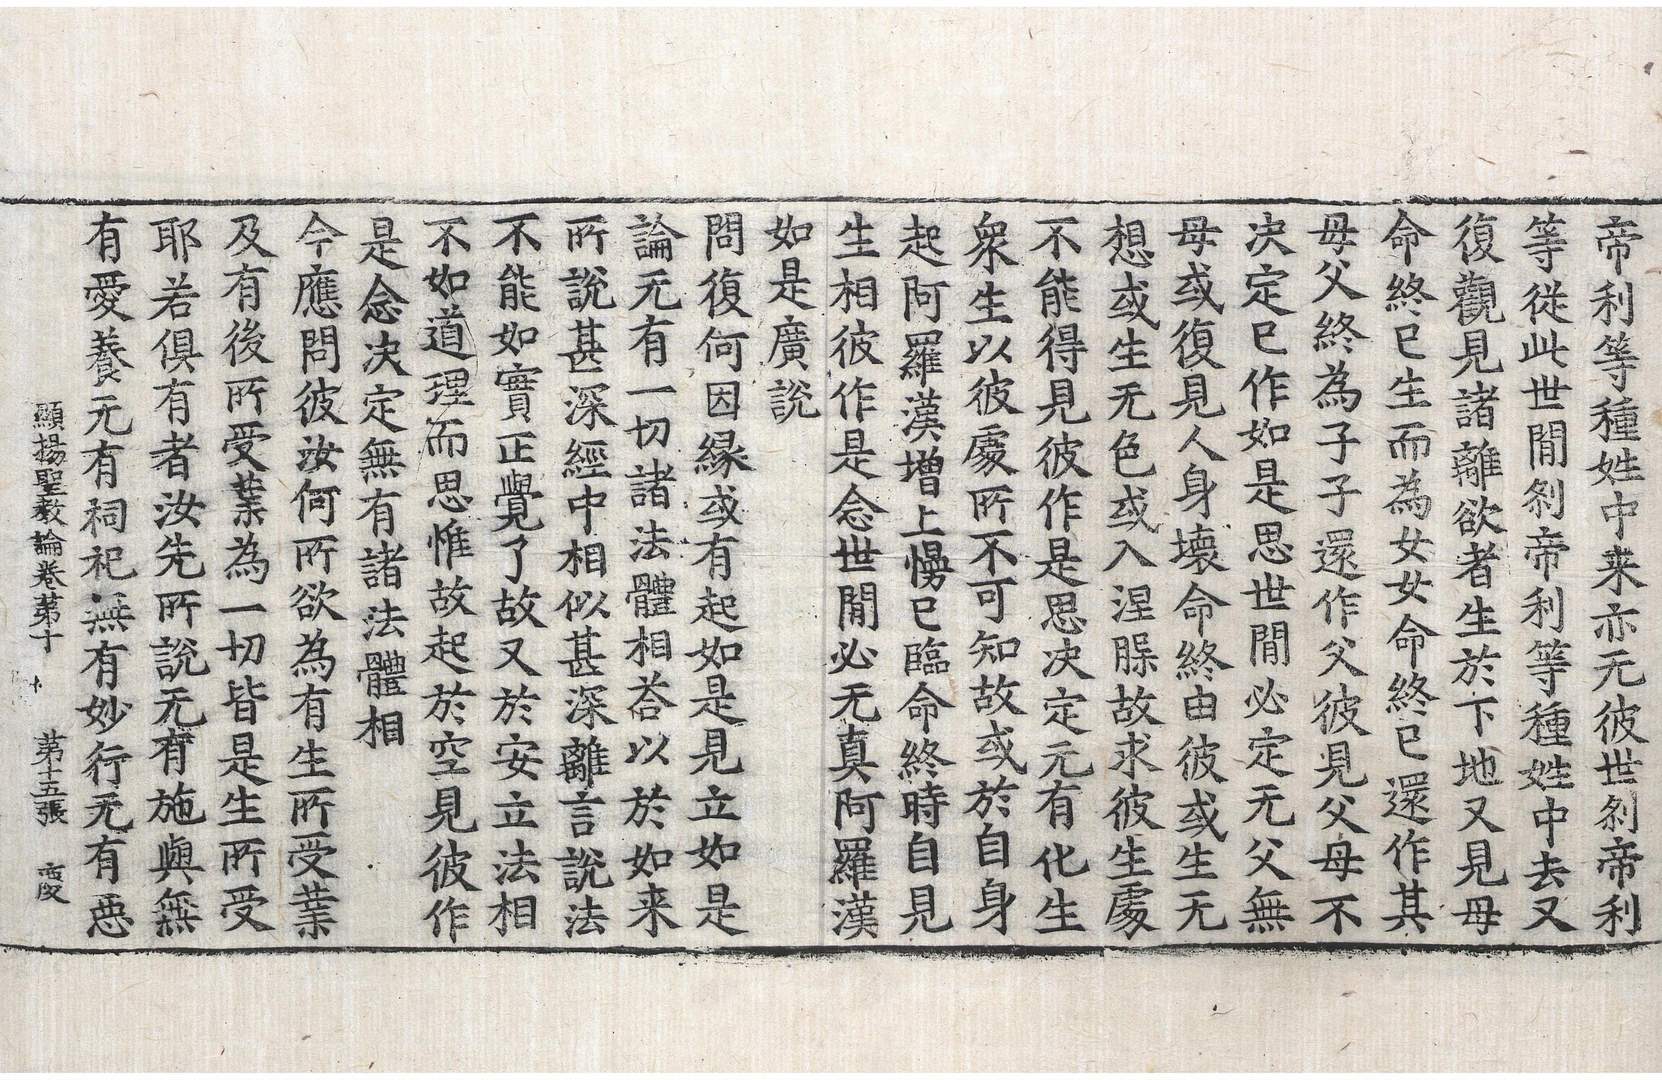 帝利等種姓中来亦无彼世刹帝利
等從此世間刹帝利等種姓中去又
復觀見諸離欲者生於下地又見母
命終已生而為女女命終已還作其
母父終為子子還作父彼見父母不
决定已作如是思世間必定无父無
母或復見人身壞命終由彼或生无
想或生无色或入涅脲故求彼生處
不能得見彼作是思决定无有化生
衆生以彼處所不可知故或於自身
起阿羅漢增上慢已臨命終時自見
生相彼作是念世間必无真阿羅漢
如是廣說
問復何因縁或有起如是見立如是
論无有一切諸法體相荅以於如来
所說甚深經中相似甚深離言說法
不能如實正覺了故又於安立法相
不如道理而思惟故起於空見彼作
是念决定無有諸法體相
今應問彼汝何所欲為有生所受業
及有後所受業為一切皆是生所受
耶若俱有者汝先所說无有施與無
有愛養无有祠祀無有妙行无有惡
顯揚聖教論卷第十 第十五張 虔